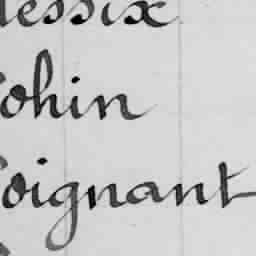 dessix
ohin
oignant